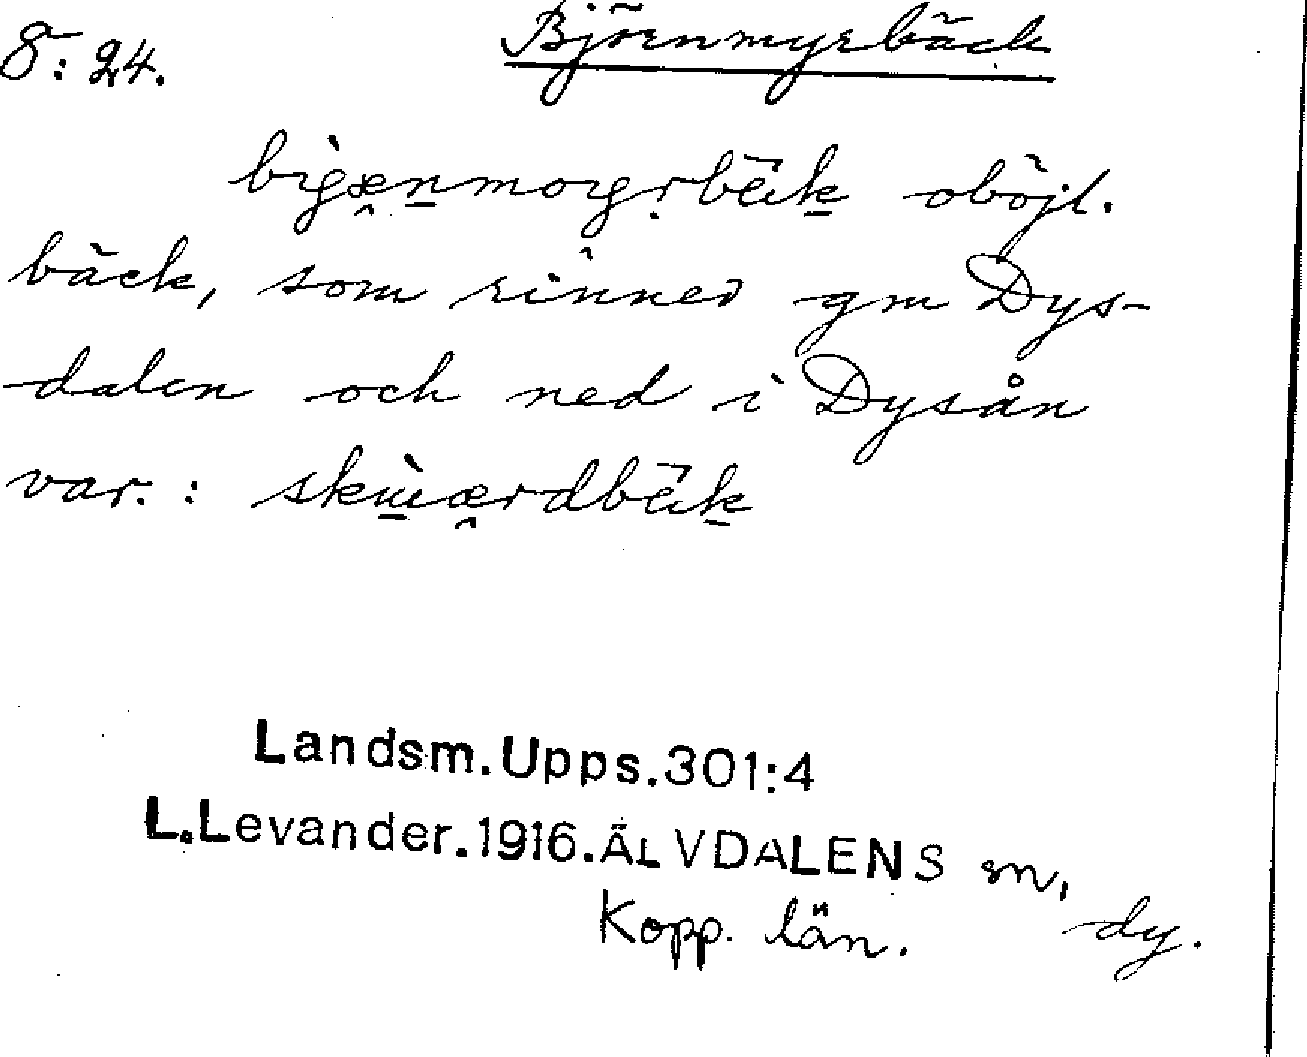 8:24. Björnmyrbäck
oböjl.
bäck, som rinner gm Dys-
dalen och ned i Dysån
var. :
Landsm. Upps. 301:4
L. Levander. 1916. ÄLVDALENS sn,
Kopp. län. dy.